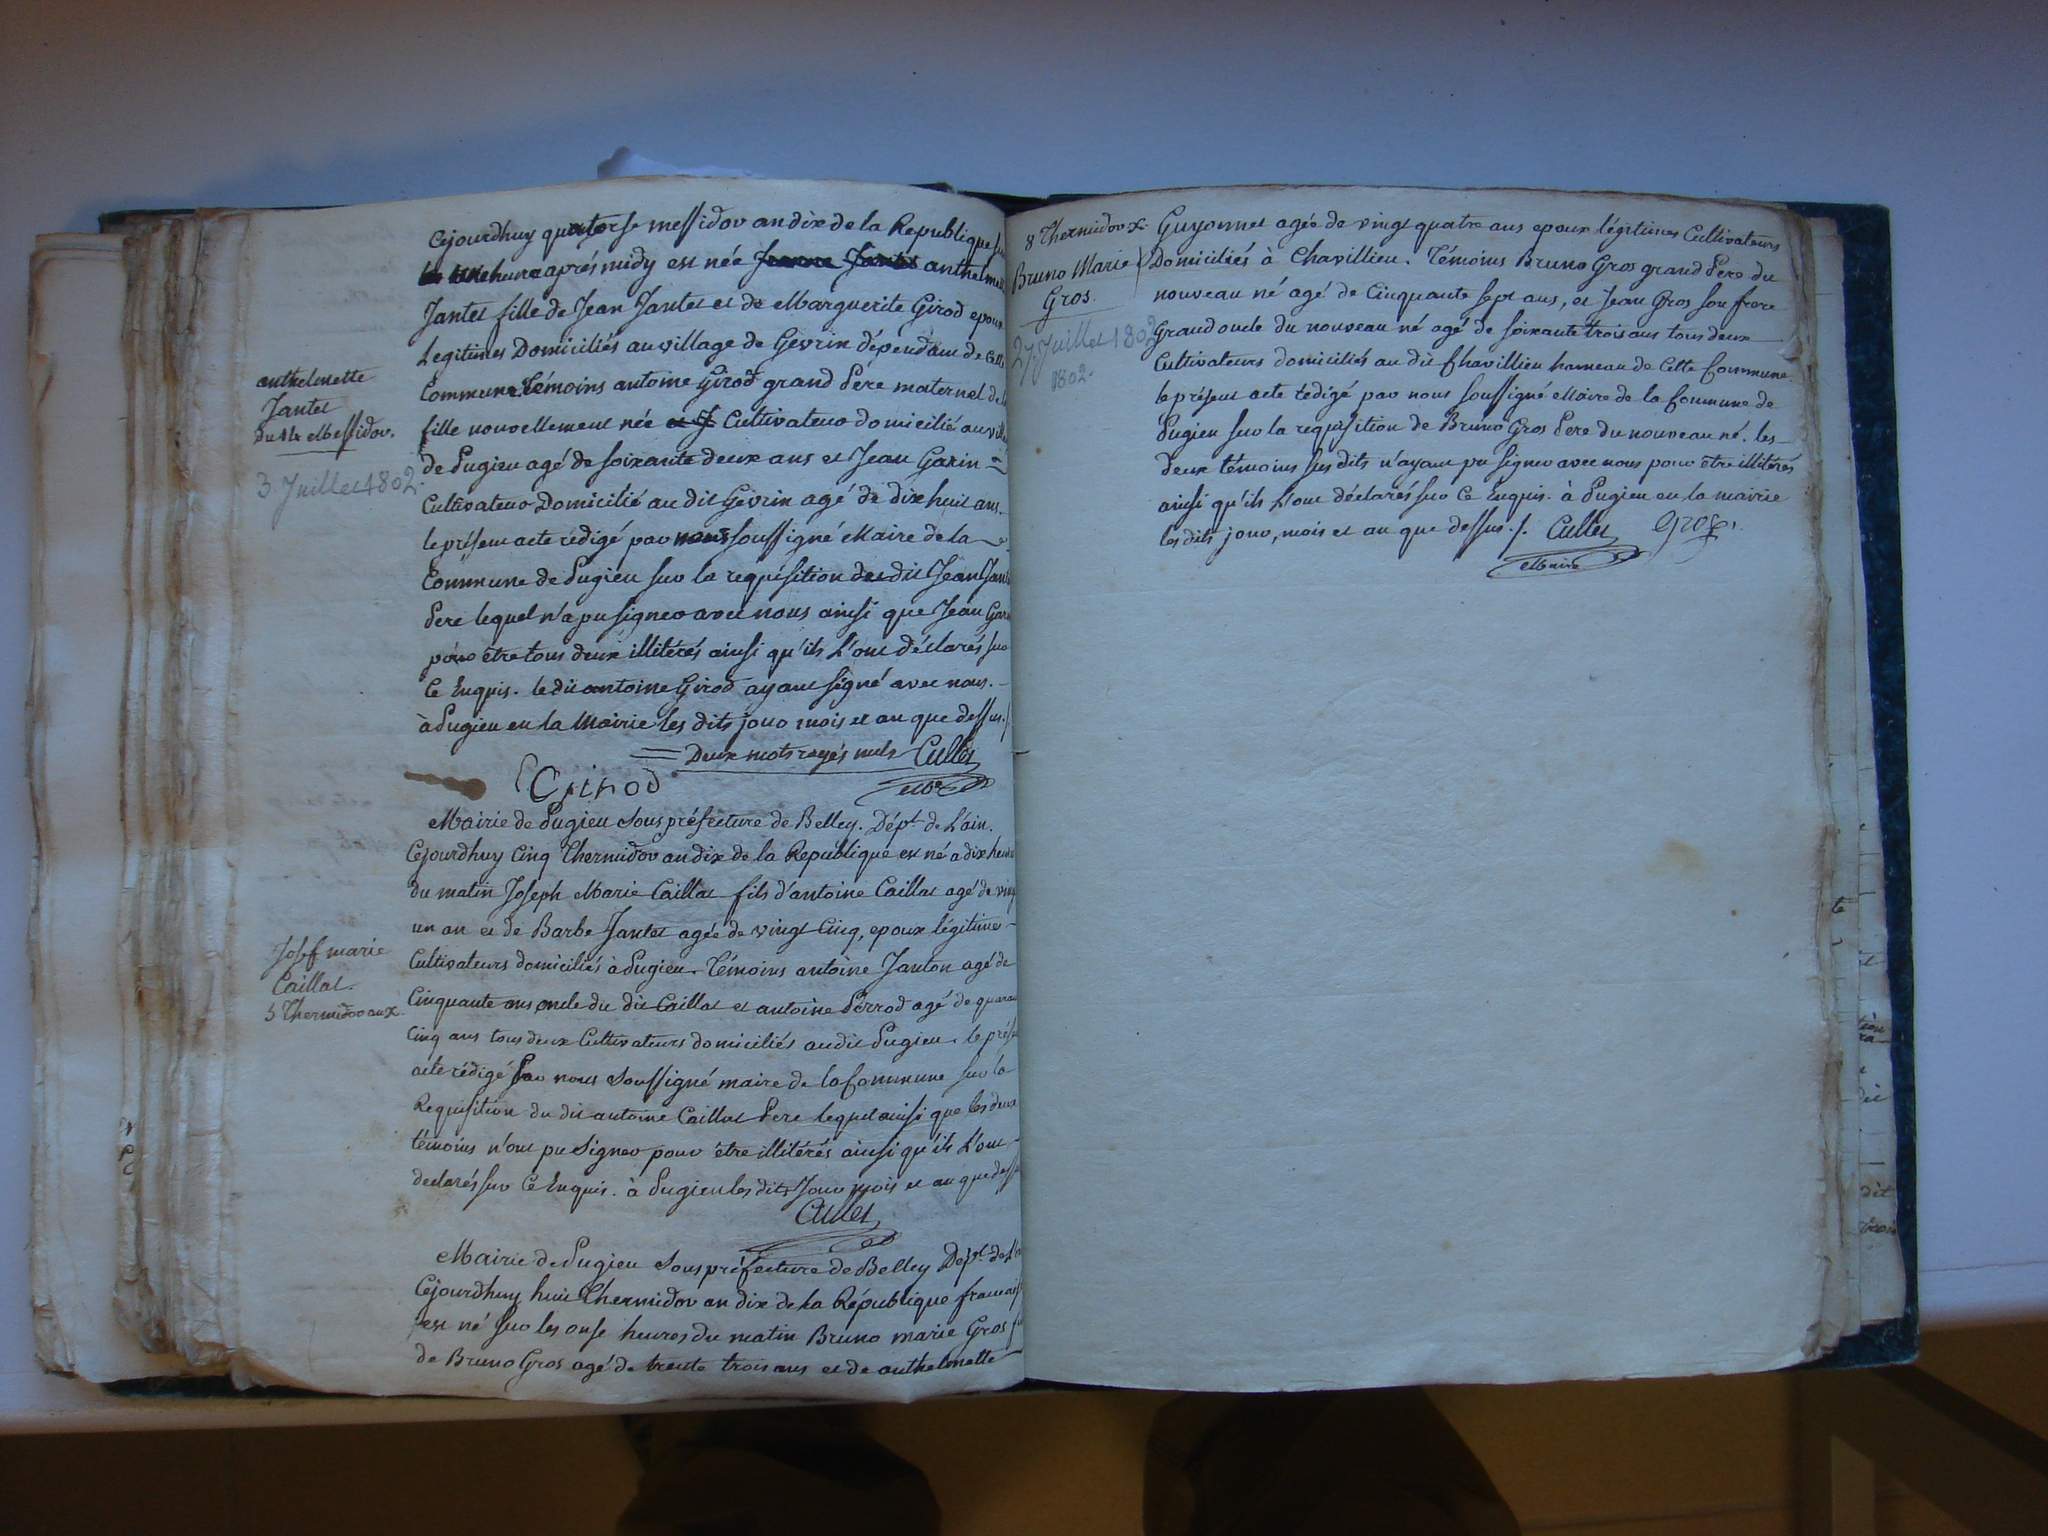 Cejourdhuy quatorse messidor an dix de la Republique sur
heure aprés midy est née Jeanne Jantet anthelmette
Jantet fille de Jean Jantet et de Marguerite Girod epoux
Legitimes Domiciliés au village de Gevrin dépendant de Cette
Commune. Témoins antoine Girod grand Pére maternel de la
fille nouvellement née Cultivateur domicilié au village
anthelmette
Jantet
du 14 Messidor.
3 Juillet 1802.
de Pugieu agé de soixante deux ans et Jean Garin
Cultivateur Domicilié au dit Gevrin agé de dix huit ans.
le présent acte rédigé par nous soussigné Maire de la
Commune de Pugieu sur la requisition du dit Jean Jantet
Pere lequel n'a pu signer avec nous ainsi que Jean Garin
pour être tous deux illitérés ainsi qu'ils L'ont déclarés sur
Ce Enquis. le dit antoine Girod ayant signé avec nous.
à Pugieu en la Mairie les dits jour mois et an que dessus./.
= Deux mots rayés nuls Cullet
Girod
Mre
Mairie de Pugieu Sous préfecture de Belley. Dépt. de L'ain.
Cejourdhuy Cinq Thermidor an dix de la Republique est né a dix heures
du matin Joseph Marie Caillat fils d'antoine Caillat agé de vingt
un an et de Barbe Jantet agée de vingt Cinq, epoux légitime
Cultivateurs domiciliés à Pugieu. Témoins antoine Janton agé de
Cinquante ans oncle du dit Caillat et antoine Perrod agé de quarante
Cinq ans tous deux Cultivateurs domiciliés audit Pugieu. le présent
Josef marie
Caillat.
5 Thermidor an X.
acte rédigé Par nous Soussigné maire de la Commune sur la
Requisition du dit antoine Caillat Pere lequel ainsi que les deux
témoins n'ont pu Signer pour être illitérés ainsi qu'ils L'ont
declarés sur Ce Enquis. à Pugieu les dits Jour mois et an que dessus
Cullet
Mairie de Pugieu Sous préfecture de Belley Dépt. de L'ain
Cejourdhuy huit Thermidor an dix de la République francaise
est né sur les onse heures du matin Bruno marie Gros fils
de Bruno Gros agé de trente trois ans et de anthelmette
8 Thermidor X.
Bruno Marie
Gros.
27. Juillet 1802
1802.
Guyonnet agée de vingt quatre ans epoux légitimes Cultivateurs
Domiciliés à Chavillieu. Témoins Bruno Gros grand Pere du
nouveau né agé de Cinquante sept ans, et Jean Gros son frere
Grand oncle du nouveau né agé de soixante trois ans tous deux
Cultivateurs domiciliés au dit Chavillieu hameau de Cette Commune.
le présent acte rédigé par nous soussigné Maire de la Commune de
Pugieu sur la requisition de Bruno Gros Pere du nouveau né. les
deux témoins sus dits n'ayant pu signer avec nous pour être illitérés
ainsi qu'ils L'ont déclarés sur Ce Enquis. à Pugieu en la mairie
les dits jour, mois et an que dessus ./. Cullet Gros.
Maire